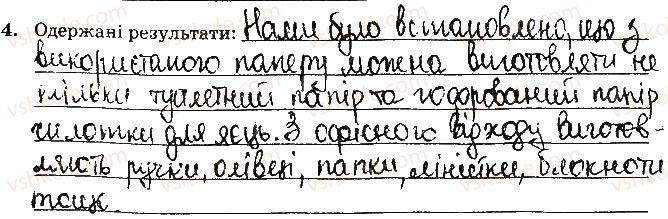 4. Одержані результати: Нами було встановлено, що з
використаного паперу можна виготовляти не
тільки туалетний папір та гофрований папір
чи лотки для яєць. З офісного відходу виготов-
ляють ручки, олівці, папки, лінійки, блокноти
тощо.